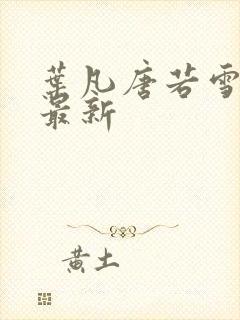 葉凡唐若雪
最新
黄土